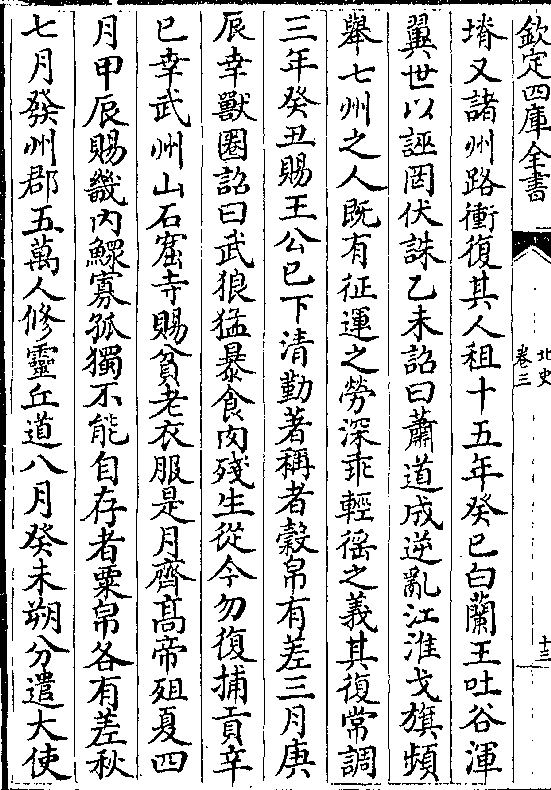 欽定四庫全書
北史
卷三
十三
堉又諸州路衝復其人租十五年癸巳白蘭王吐谷渾
翼世以誣罔伏誅乙未詔曰蕭道成逆亂江淮戈旗頻
舉七州之人既有征運之勞深乖輕徭之義其復常調
三年癸丑賜王公巳下清勤著稱者榖帛有差三月庚
辰幸獸圈詔曰武狼猛暴食肉殘生從今勿復捕貢辛
巳幸武州山石窟寺賜貧老衣服是月齊髙帝殂夏四
月甲辰賜畿内鰥寡孤獨不能自存者粟帛各有差秋
七月發州郡五萬人修靈丘道八月癸未朔分遣大使